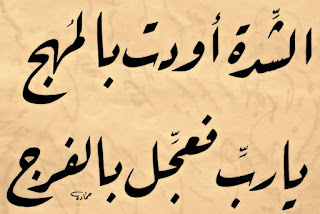 الشِّدة أودت بالمُهج
يا ربِّ فعجِّل بالفرج